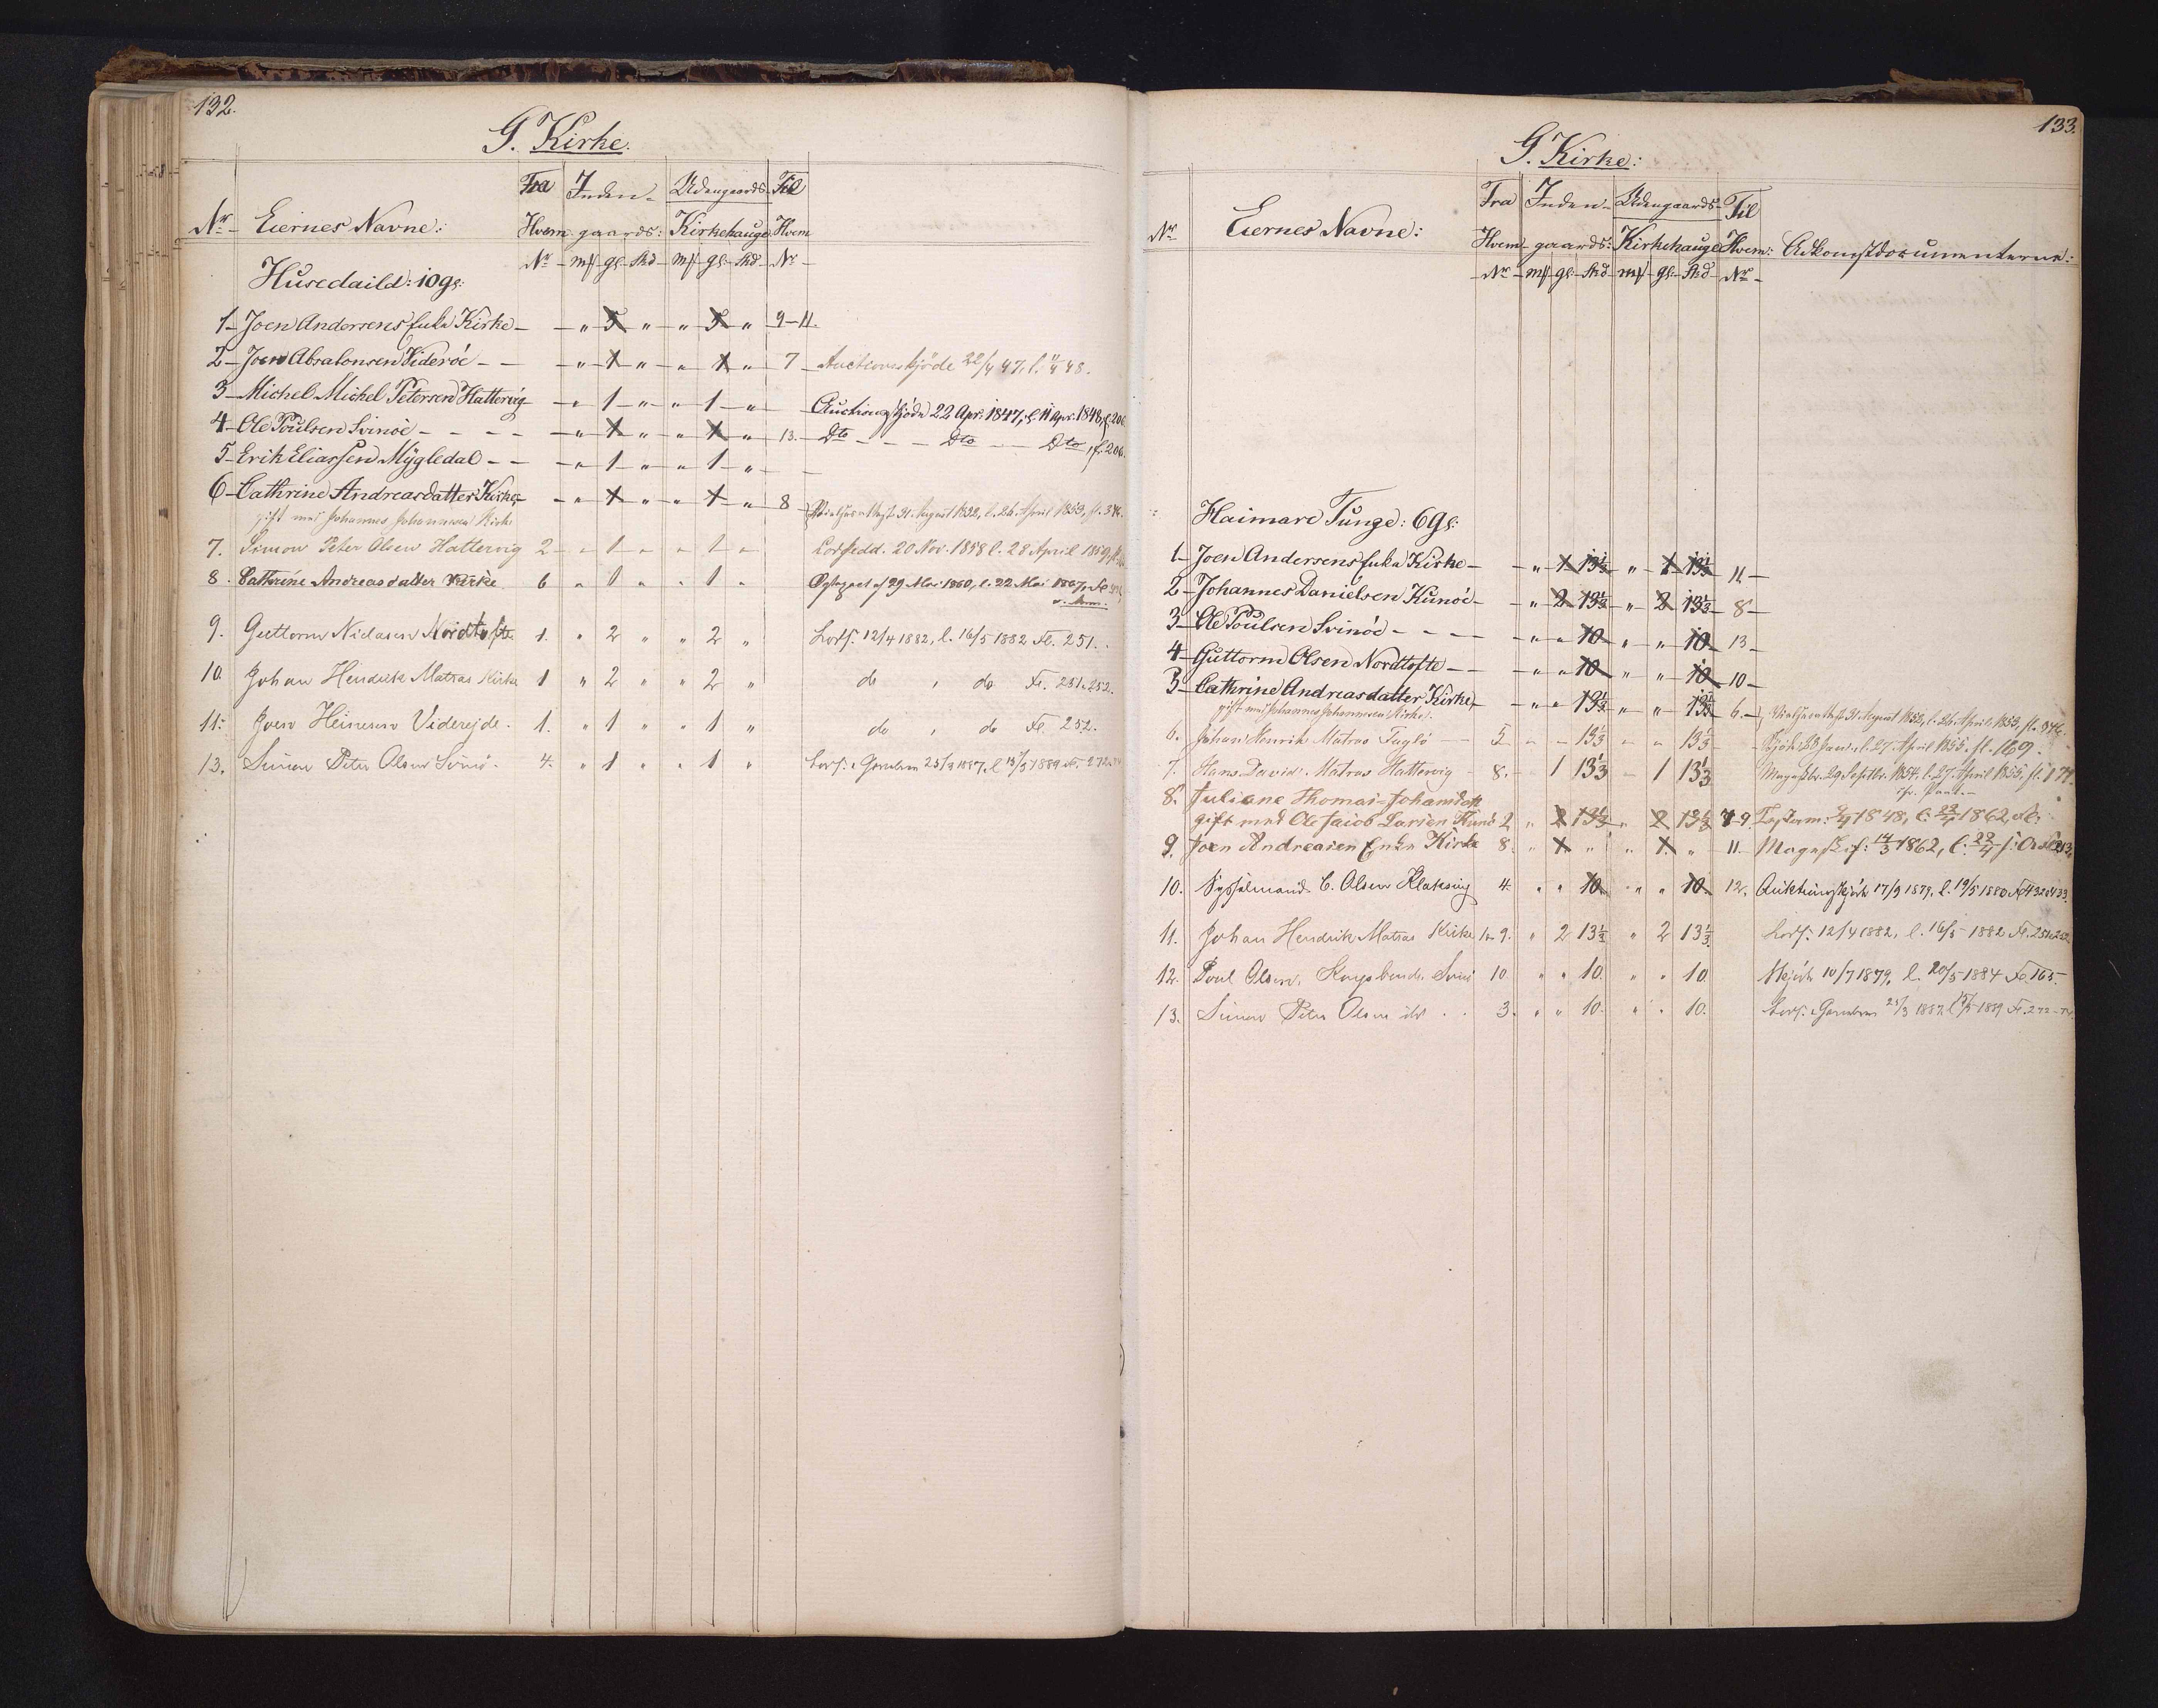 132.
G. Kirke.
Fra Inden- Udengaards- Til
Nr. Eiernes Navne: Hvem gaards: Kirkehauge Hvem
Nr mk gl. Skd mk gl. Skd Nr
Husedaild: 10 gl:
1 Joen Andersens Enke Kirke " 5 " " 5 " 9-11.
2 Joen Absalonsen Viderøe " 1 " " 1 " 7 Auctionsskjøde 22/4 47, l. 11/4 48.
3 Michel Michel Petersen Hattervig " 1 " " 1 " Auctionsskjøde 22 Apr. 1847, l. 11 Apr. 1848, f. 206
4 Ole Poulsen Svinöe " 1 " " 1 " 13. Dto Dto Dto, f. 206.
5 Erik Eliassen Mÿgledal " 1 " " 1 "
6 Cathrine Andreasdatter Kirke, " 1 " " 1 " 8 31 August 1852, l. 26 April 1853, fl. 376.
gift med Johannes Johannesen Kirke
7. Simon Peter Olsen Hattervig 2 " 1 " " 1 " Lodsedd. 20 Nov. 1858 l. 28 April 1859,
8. Cathrine Andreasdatter Kirke 6 " 1 " " 1 " Ægtepact af 29 Mai 1860, l. 22 Mai 1867, Fl
9. Guttorm Niclasen Nordtofte 1. " 2 " " 2 " Lods. 12/4 1882, l. 16/5 1882 Fl. 251.
10. Johan Hendrik Matras Kirke 1 " 2 " " 2 " do " do Fl. 251.252.
11. Joen Heinesen Viderejde. 1. " 1 " " 1 " do " do Fl. 252.
13. Simon Peter Olsen Svinö. 4. " 1 " " 1 " Lods. 25/3 1887, l. 15/5 1889 Fl. 272
133.
G. Kirke:
Fra Inden- Udengaards- Til
Nr. Eiernes Navne: Hvem gaards: Kirkehauge Hvem: Adkomstdocumenterne:
Nr mk gl. Skd mk gl. Skd Nr
Haimare Tunge: 6 gl:
1 Joen Andersens Enke Kirke " 1 13⅓ " 1 13⅓ 11
2 Johannes Danielsen Kunöe " 2 13⅓ " 2 13⅓ 8
3 Ole Poulsen Svinöe " " 10 " " 10 13
4 Guttorm Olsen Nordtofte " " 10 " " 10 10
5 Cathrine Andreasdatter Kirke, " " 13⅓ " " 13⅓ 6. 31 August 1852, l. 26 April 1853, fl. 376.
gift med Johannes Johannesen Kirke.
6. Johan Henrik Matras Fuglö 5 " " 13⅓ " " 13⅓ Skjöde l. 27 April 1855. fl. 169.
7. Hans David Matras Hattervig 8. " 1 13⅓ " 1 13⅓ 29 Septbr. 1854, l. 27 April 1855, fl. 174
8. Juliane Thomas=Johansdatt
gift med Ole Jacob Larsen Kunö 2 " 2 13⅓ " 2 13⅓ 7-9. 1848, l. 22/4 1862,
9. Joen Andreasen Enke Kirke 8. " 1. " " 1. " 11. 14/3 1862, l. 22/4
10. Sysselmand C. Olsen Klaksvig 4. " " 10 " " 10 12. Auktionsskjöde 17/9 1879, l. 19/5 1880 Fl 432.433.
11. Johan Hendrik Matras Kirke 1 9. " 2 13⅓ " 2 13⅓ Lods. 12/4 1882, l. 16/5 1882 Fl. 251.252.
12. Poul Olsen, Kongsbonde, Svinö 10 " " 10. " " 10. Skjöde 10/7 1879, l. 20/5 1884 Fl. 165.
13. Simon Peter Olsen ibd. 3. " " 10. " " 10. Lods. 25/3 1887 l. 15/5 1889 Fl. 272